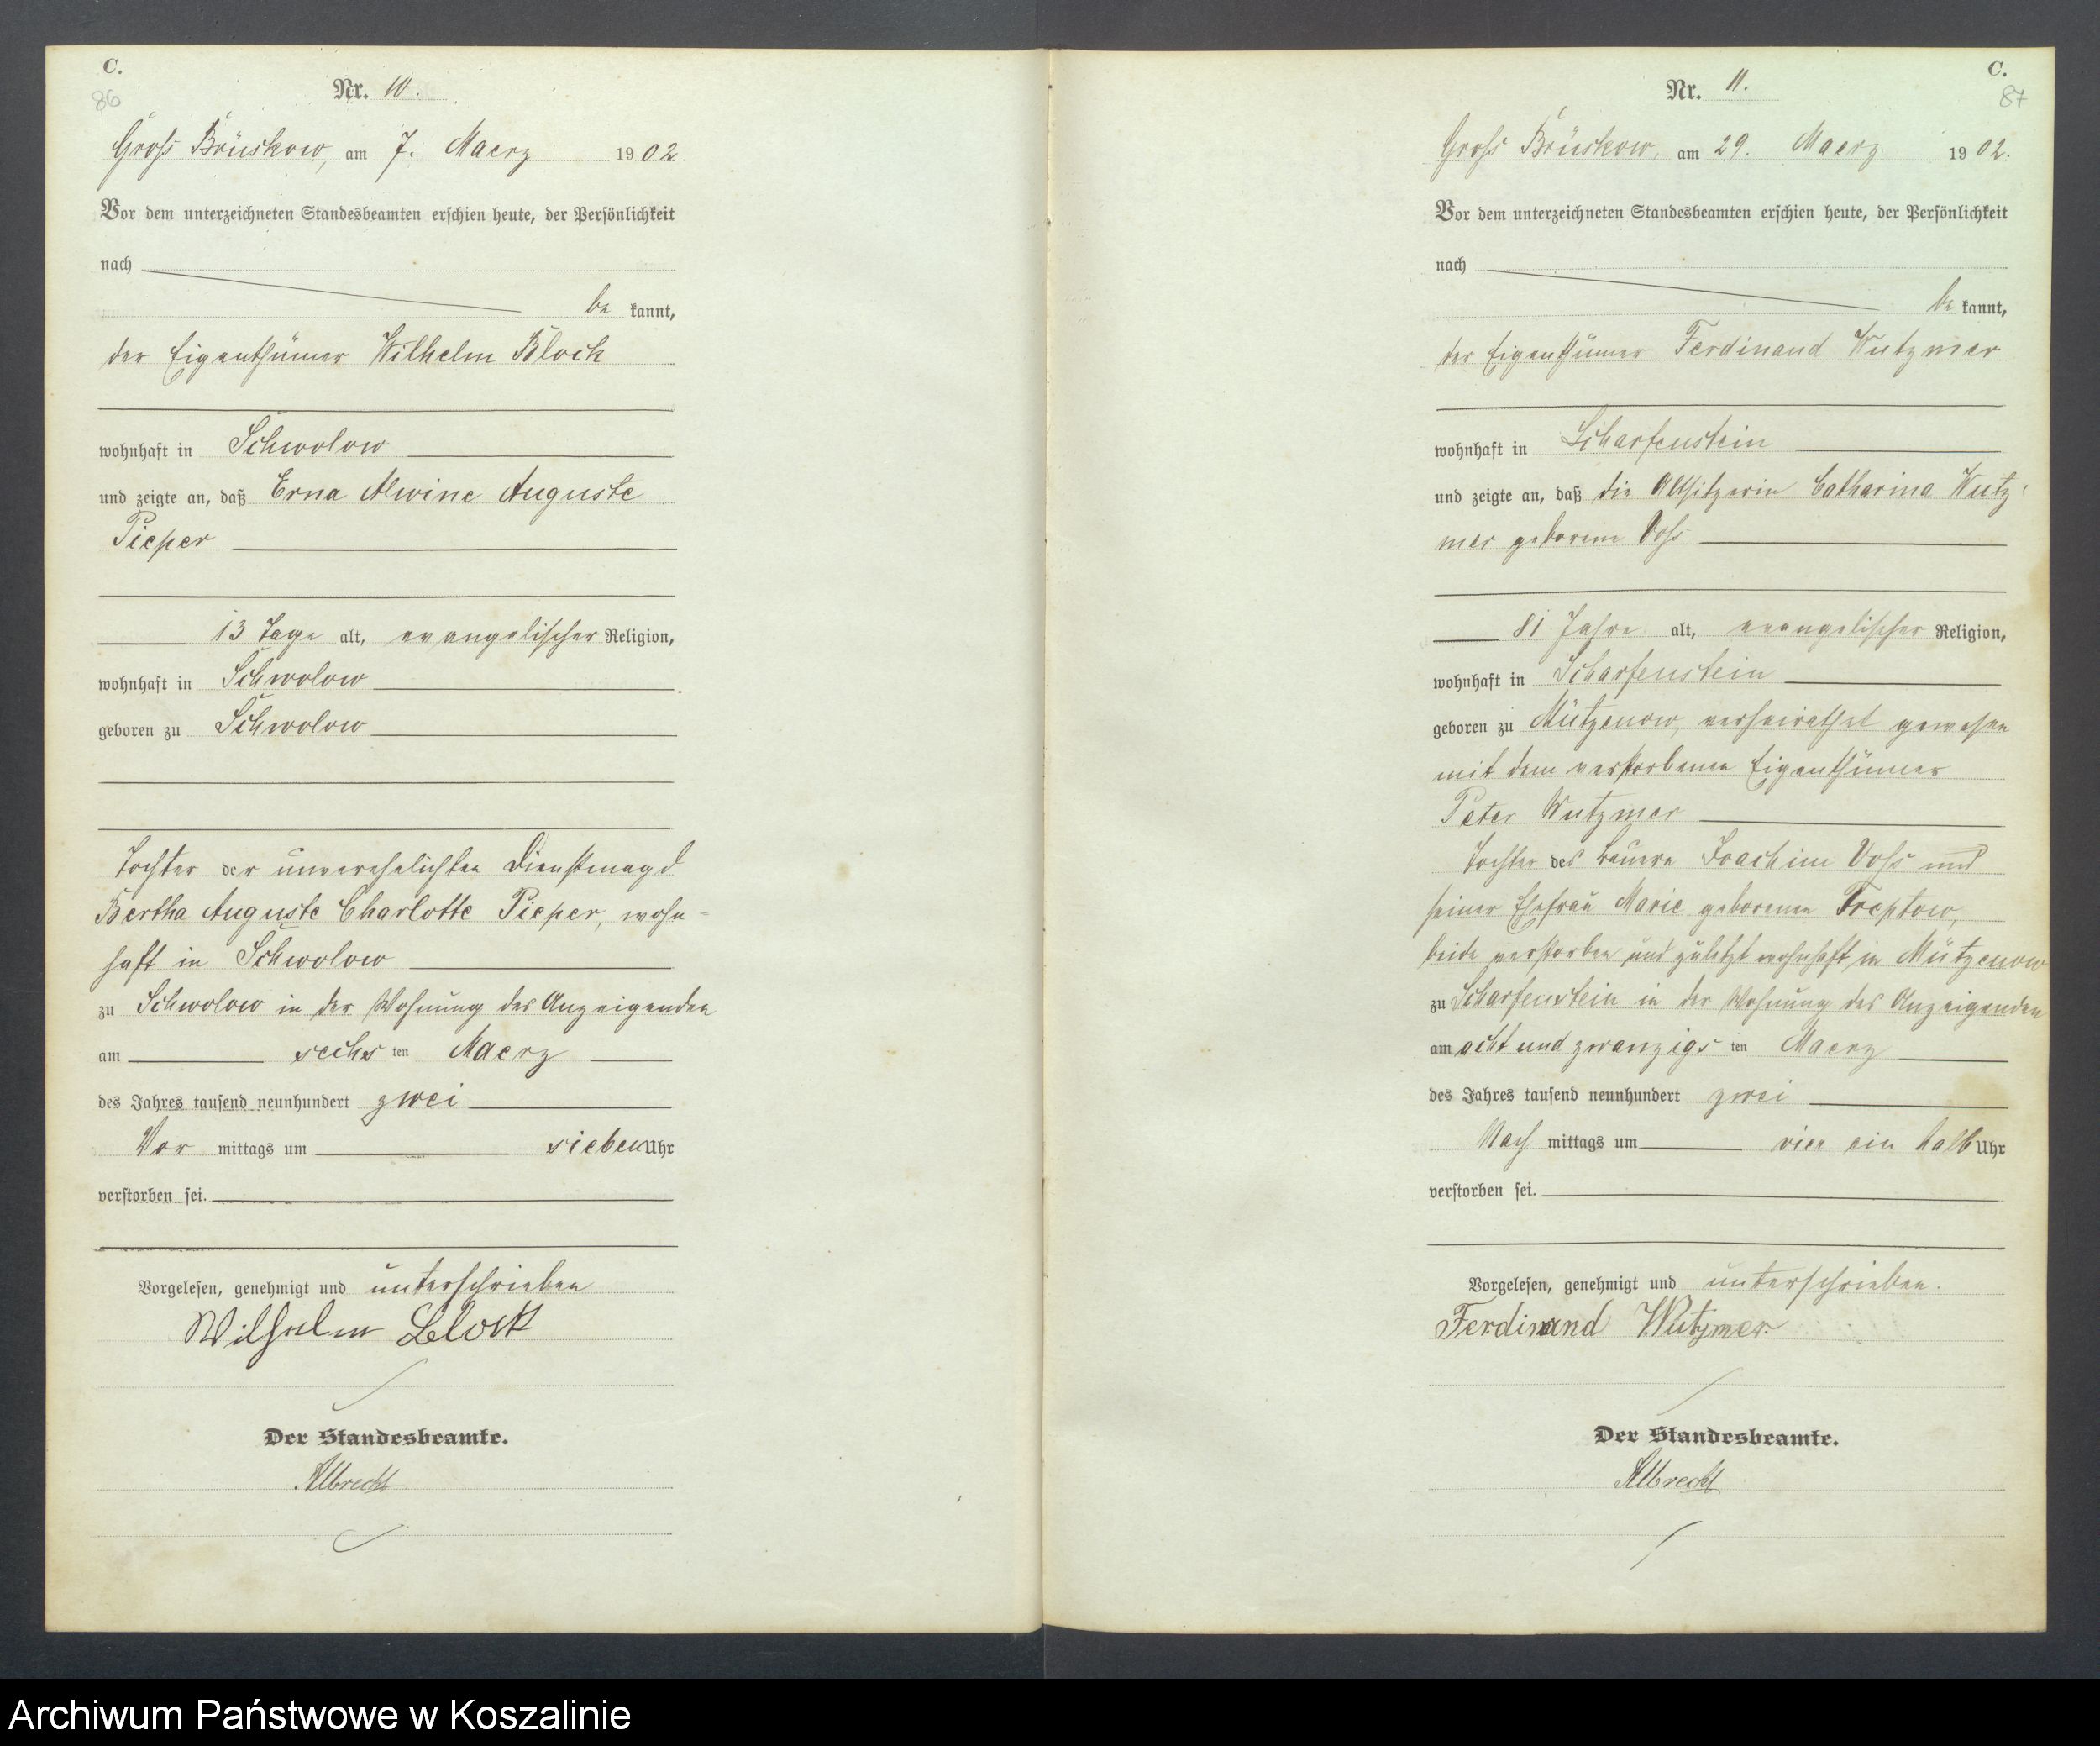 C.
86
Nr. 10.
Gross Brüskow, am 7. Maerz 1902.
Vor dem unterzeichneten Standesbeamten erschien heute, der Persönlichkeit
nach
be kannt,
der Eigenthümer Wilhelm Block
wohnhaft in Schwolow
und zeigte an, daß Erna Alwine Auguste
Pieper
13 Tage alt, evangelischer Religion,
wohnhaft in Schwolow
geboren zu Schwolow
Tochter der unverehelichten Dienstmagd
Bertha Auguste Charlotte Pieper, wohn-
haft in Schwolow
zu Schwolow in der Wohnung des Anzeigenden
am sechsten Maerz
des Jahres tausend neunhundert zwei
Vor mittags um sieben Uhr
verstorben sei.
Vorgelesen, genehmigt und unterschrieben
Wilhelm Block
Der Standesbeamte.
Albrecht
C.
87
Nr. 11.
Gross Brüskow, am 29. Maerz 1902.
Vor dem unterzeichneten Standesbeamten erschien heute, der Persönlichkeit
nach
be kannt,
der Eigenthümer Ferdinand Wutzmer
wohnhaft in Scharfenstein
und zeigte an, daß die Altsitzerin Catharina Wutz-
mer geborene Voss
81 Jahre alt, evangelischer Religion,
wohnhaft in Scharfenstein
geboren zu Mützenow, verheirathet gewesen
mit dem verstorbenen Eigenthümer
Peter Wutzmer
Tochter des Bauern Joachim Voss und
seiner Ehefrau Marie geborenen Treptow,
beide verstorben und zuletzt wohnhaft in Mützenow
zu Scharfenstein in der Wohnung des Anzeigenden
am acht und zwanzigsten Maerz
des Jahres tausend neunhundert zwei
Nach mittags um vier ein halb Uhr
verstorben sei.
Vorgelesen, genehmigt und unterschrieben.
Ferdinand Wutzmer.
Der Standesbeamte.
Albrecht
Archiwum Państwowe w Koszalinie